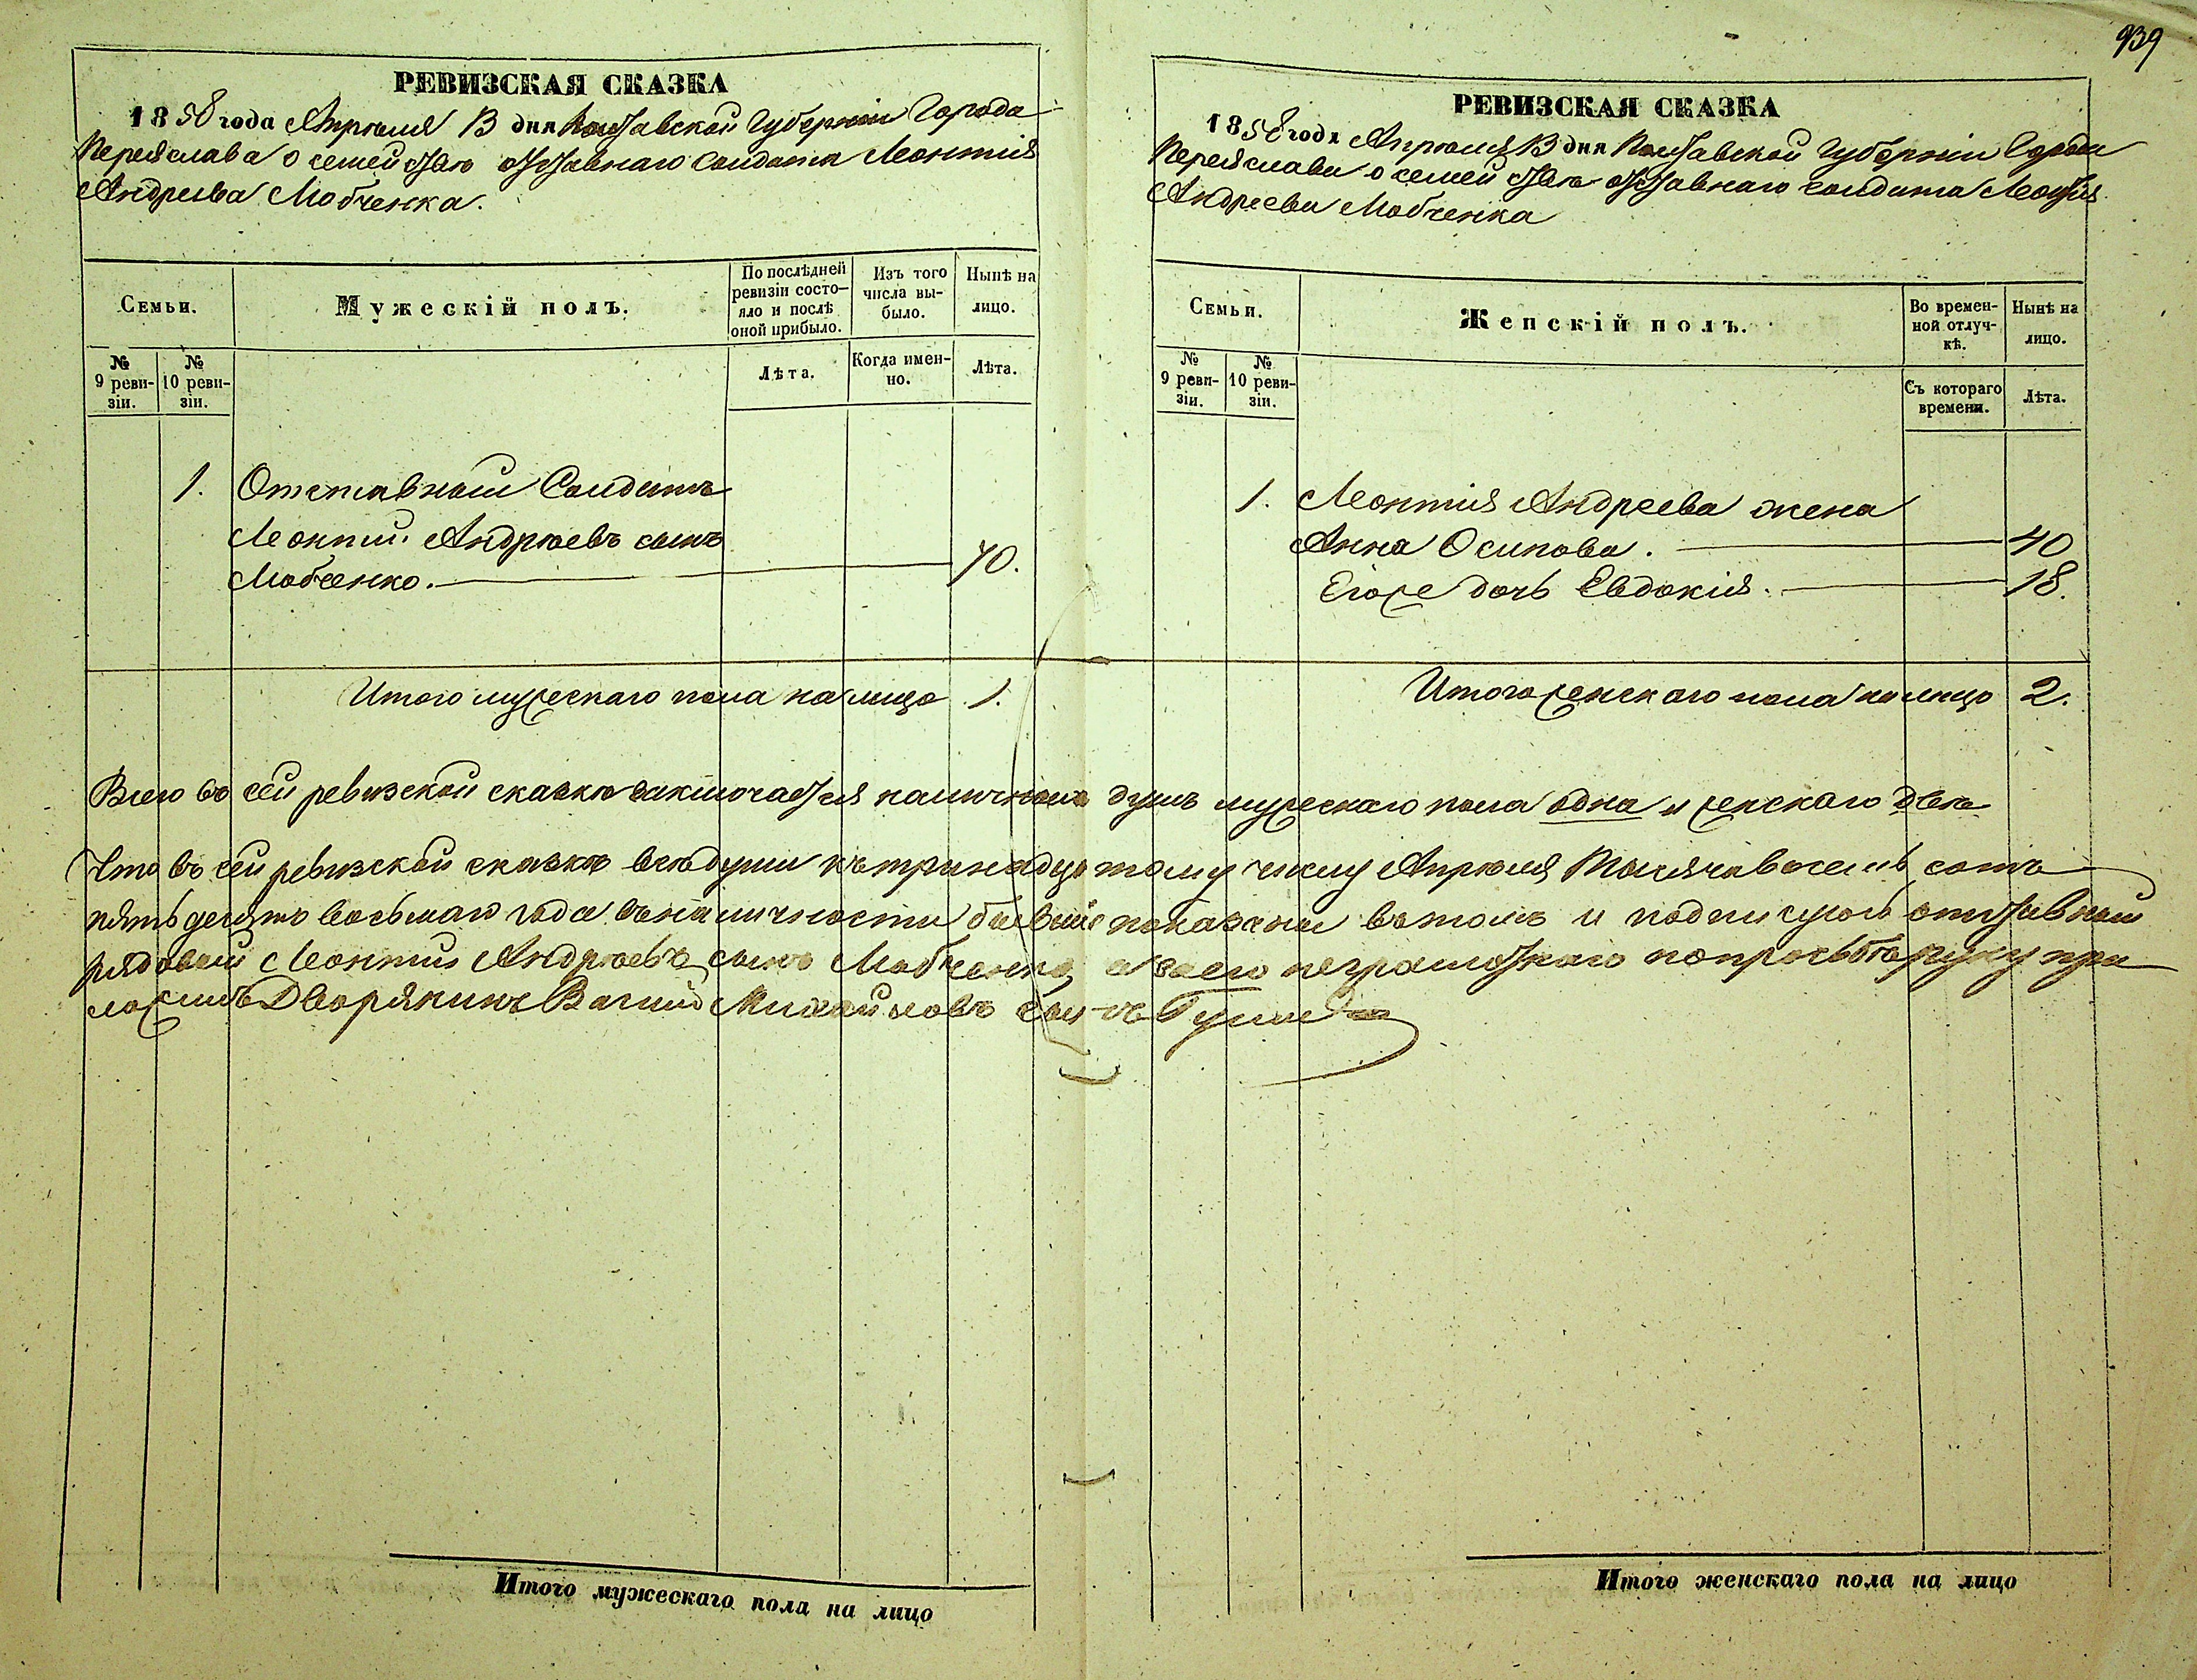 939
РЕВИЗСКАЯ СКАЗКА
1858 года Апрѣля 13 дня Полтавской Губерніи Города
Переяслава о семействѣ отставнаго Солдата Леонтія
Андреева Мовченка.
Семьи.
Мужескій полъ.
По послѣдней ревизіи состо-
яло и послѣ
оной прибыло.
Изъ того
числа вы-
было.
Нынѣ на
лицо.
№
9 реви-
зіи.
№
10 реви-
зіи.
Лѣта.
Когда имен-
но.
Лѣта.
1. Отставный Солдатъ
Леонтій Андрѣевъ сынъ
Мовченко. 70.
Итого мужескаго пола на лицо 1.
РЕВИЗСКАЯ СКАЗКА
1858 года Апрѣля 13 дня Полтавской Губерніи Города
Переяслава о семействѣ отставнаго солдата Леонтія
Андреева Мовченка
Семьи.
Женскій полъ.
Во времен-
ной отлуч-
кѣ.
Нынѣ на
лицо.
№
9 реви-
зіи.
№
10 реви-
зіи.
Съ котораго
времени.
Лѣта.
1. Леонтія Андреева жена
Анна Осипова. 40
Егоже дочь Евдокія. 18.
Итого женскаго пола на лицо 2.
Всего въ сей ревизской сказкѣ заключается наличныхъ душъ мужескаго пола одна и женскаго двѣ
Что въ сей ревизской сказкѣ всѣ души къ тринадцатому числу Апрѣля Тысяча восемь сотъ
пятьдесятъ восьмаго года въ наличности бывшіе показаны въ томъ и подписуюсь отставный
рядовый Леонтій Андрѣевъ сынъ Мовченко, а заего неграмотнаго по просьбѣ руку при
ложилъ Дворянинъ Михайловъ сынъ
Итого мужескаго пола на лицо
Итого женскаго пола на лицо